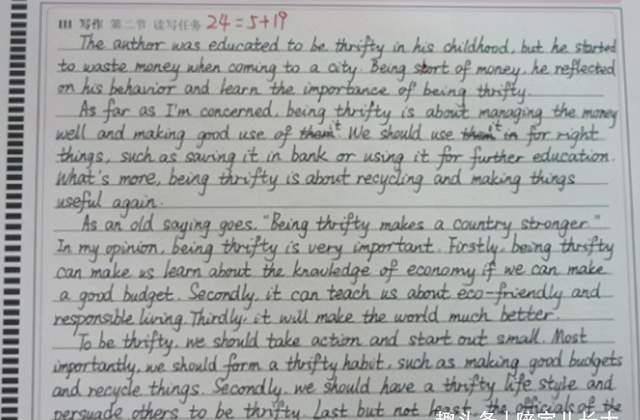 III 写作 第二节 读写任务 24=5+19
The author was educated to be thrifty in his childhood, but he started
to waste money when coming to a city. Being short of money, he reflected
on his behavior and learn the importance of being thrifty.
As far as I'm concerned, being thrifty is about managing the money
well and making good use of them it. We should use them it in for right
things, such as saving it in bank or using it for further education.
What's more, being thrifty is about recycling and making things
useful again.
As an old saying goes, "Being thrifty makes a country stronger."
In my opinion, being thrifty is very important. Firstly, being thrifty
can make us learn about the knowledge of economy if we can make
a good budget. Secondly, it can teach us about eco-friendly and
responsible living. Thirdly, it will make the world much better.
To be thrifty, we should take action and start out small. Most
importantly, we should form a thrifty habit, such as making good budgets
and recycle things. Secondly, we should have a thrifty life style and
persuade others to be thrifty. Last but not least, the officials of the